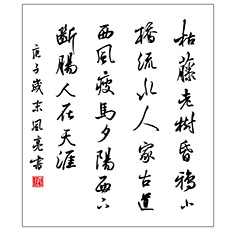 枯藤老樹昏鴉小
橋流水人家古道
西風瘦馬夕陽西下
斷腸人在天涯
庚子歲末風亮書